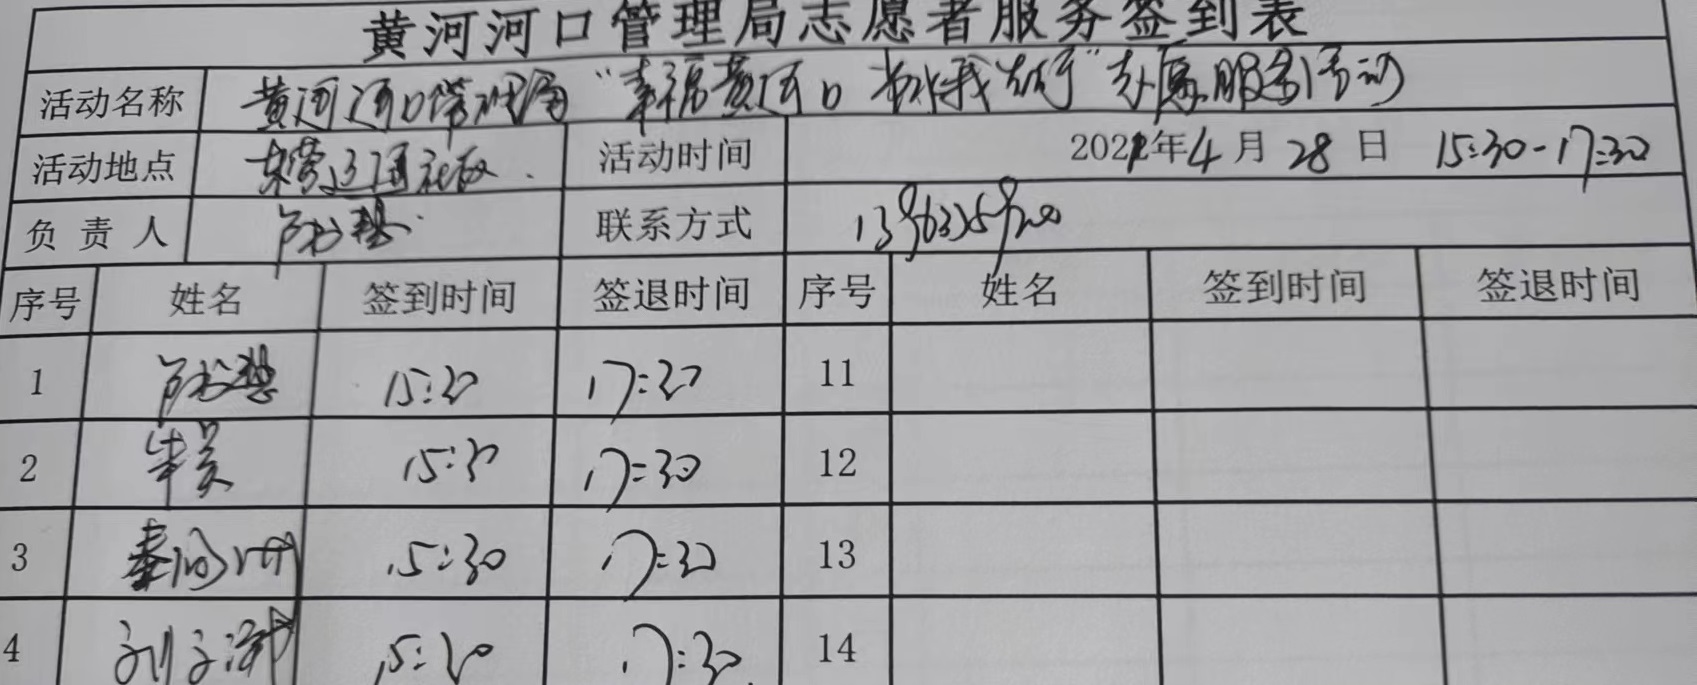 黄河河口管理局志愿者服务签到表
活动名称 黄河河口管理局“幸福黄河口 有我先行”志愿服务活动
活动地点 社区 活动时间 2022年4月28日 15:30-17:30
负责人 联系方式
序号 姓名 签到时间 签退时间 序号 姓名 签到时间 签退时间
1 15:30 17:30 11
2 毕美 15:30 17:30 12
3 秦 15:30 17:30 13
4 刘 15:30 17:30 14